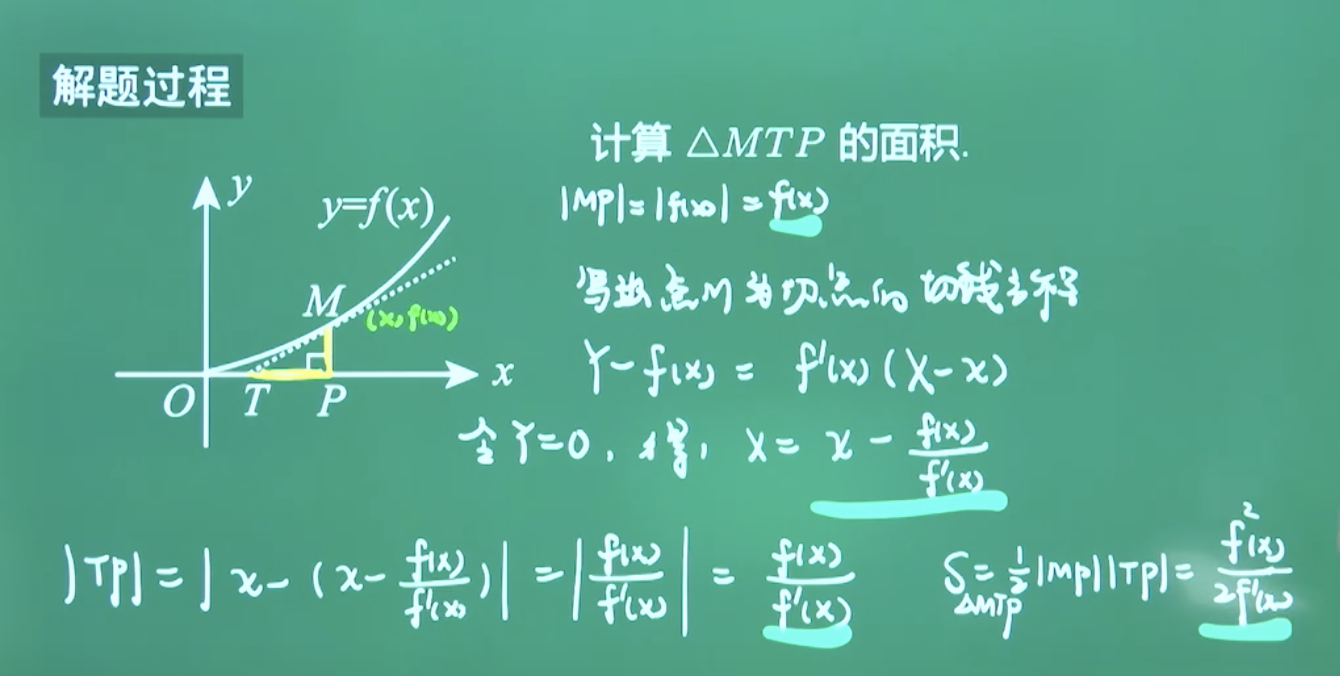 解题过程
计算 △MTP 的面积.
y
y=f(x)
M
(x, f(x))
O
T
P
x
|MP|=|f(x)|=f(x)
写出点M为切点的切线方程
Y-f(x)=f'(x)(X-x)
令Y=0, 得, X=x-\frac{f(x)}{f'(x)}
|TP|=|x-(x-\frac{f(x)}{f'(x)})|=|\frac{f(x)}{f'(x)}|=\frac{f(x)}{f'(x)}
S_{△MTP}=\frac{1}{2}|MP||TP|=\frac{f^2(x)}{2f'(x)}